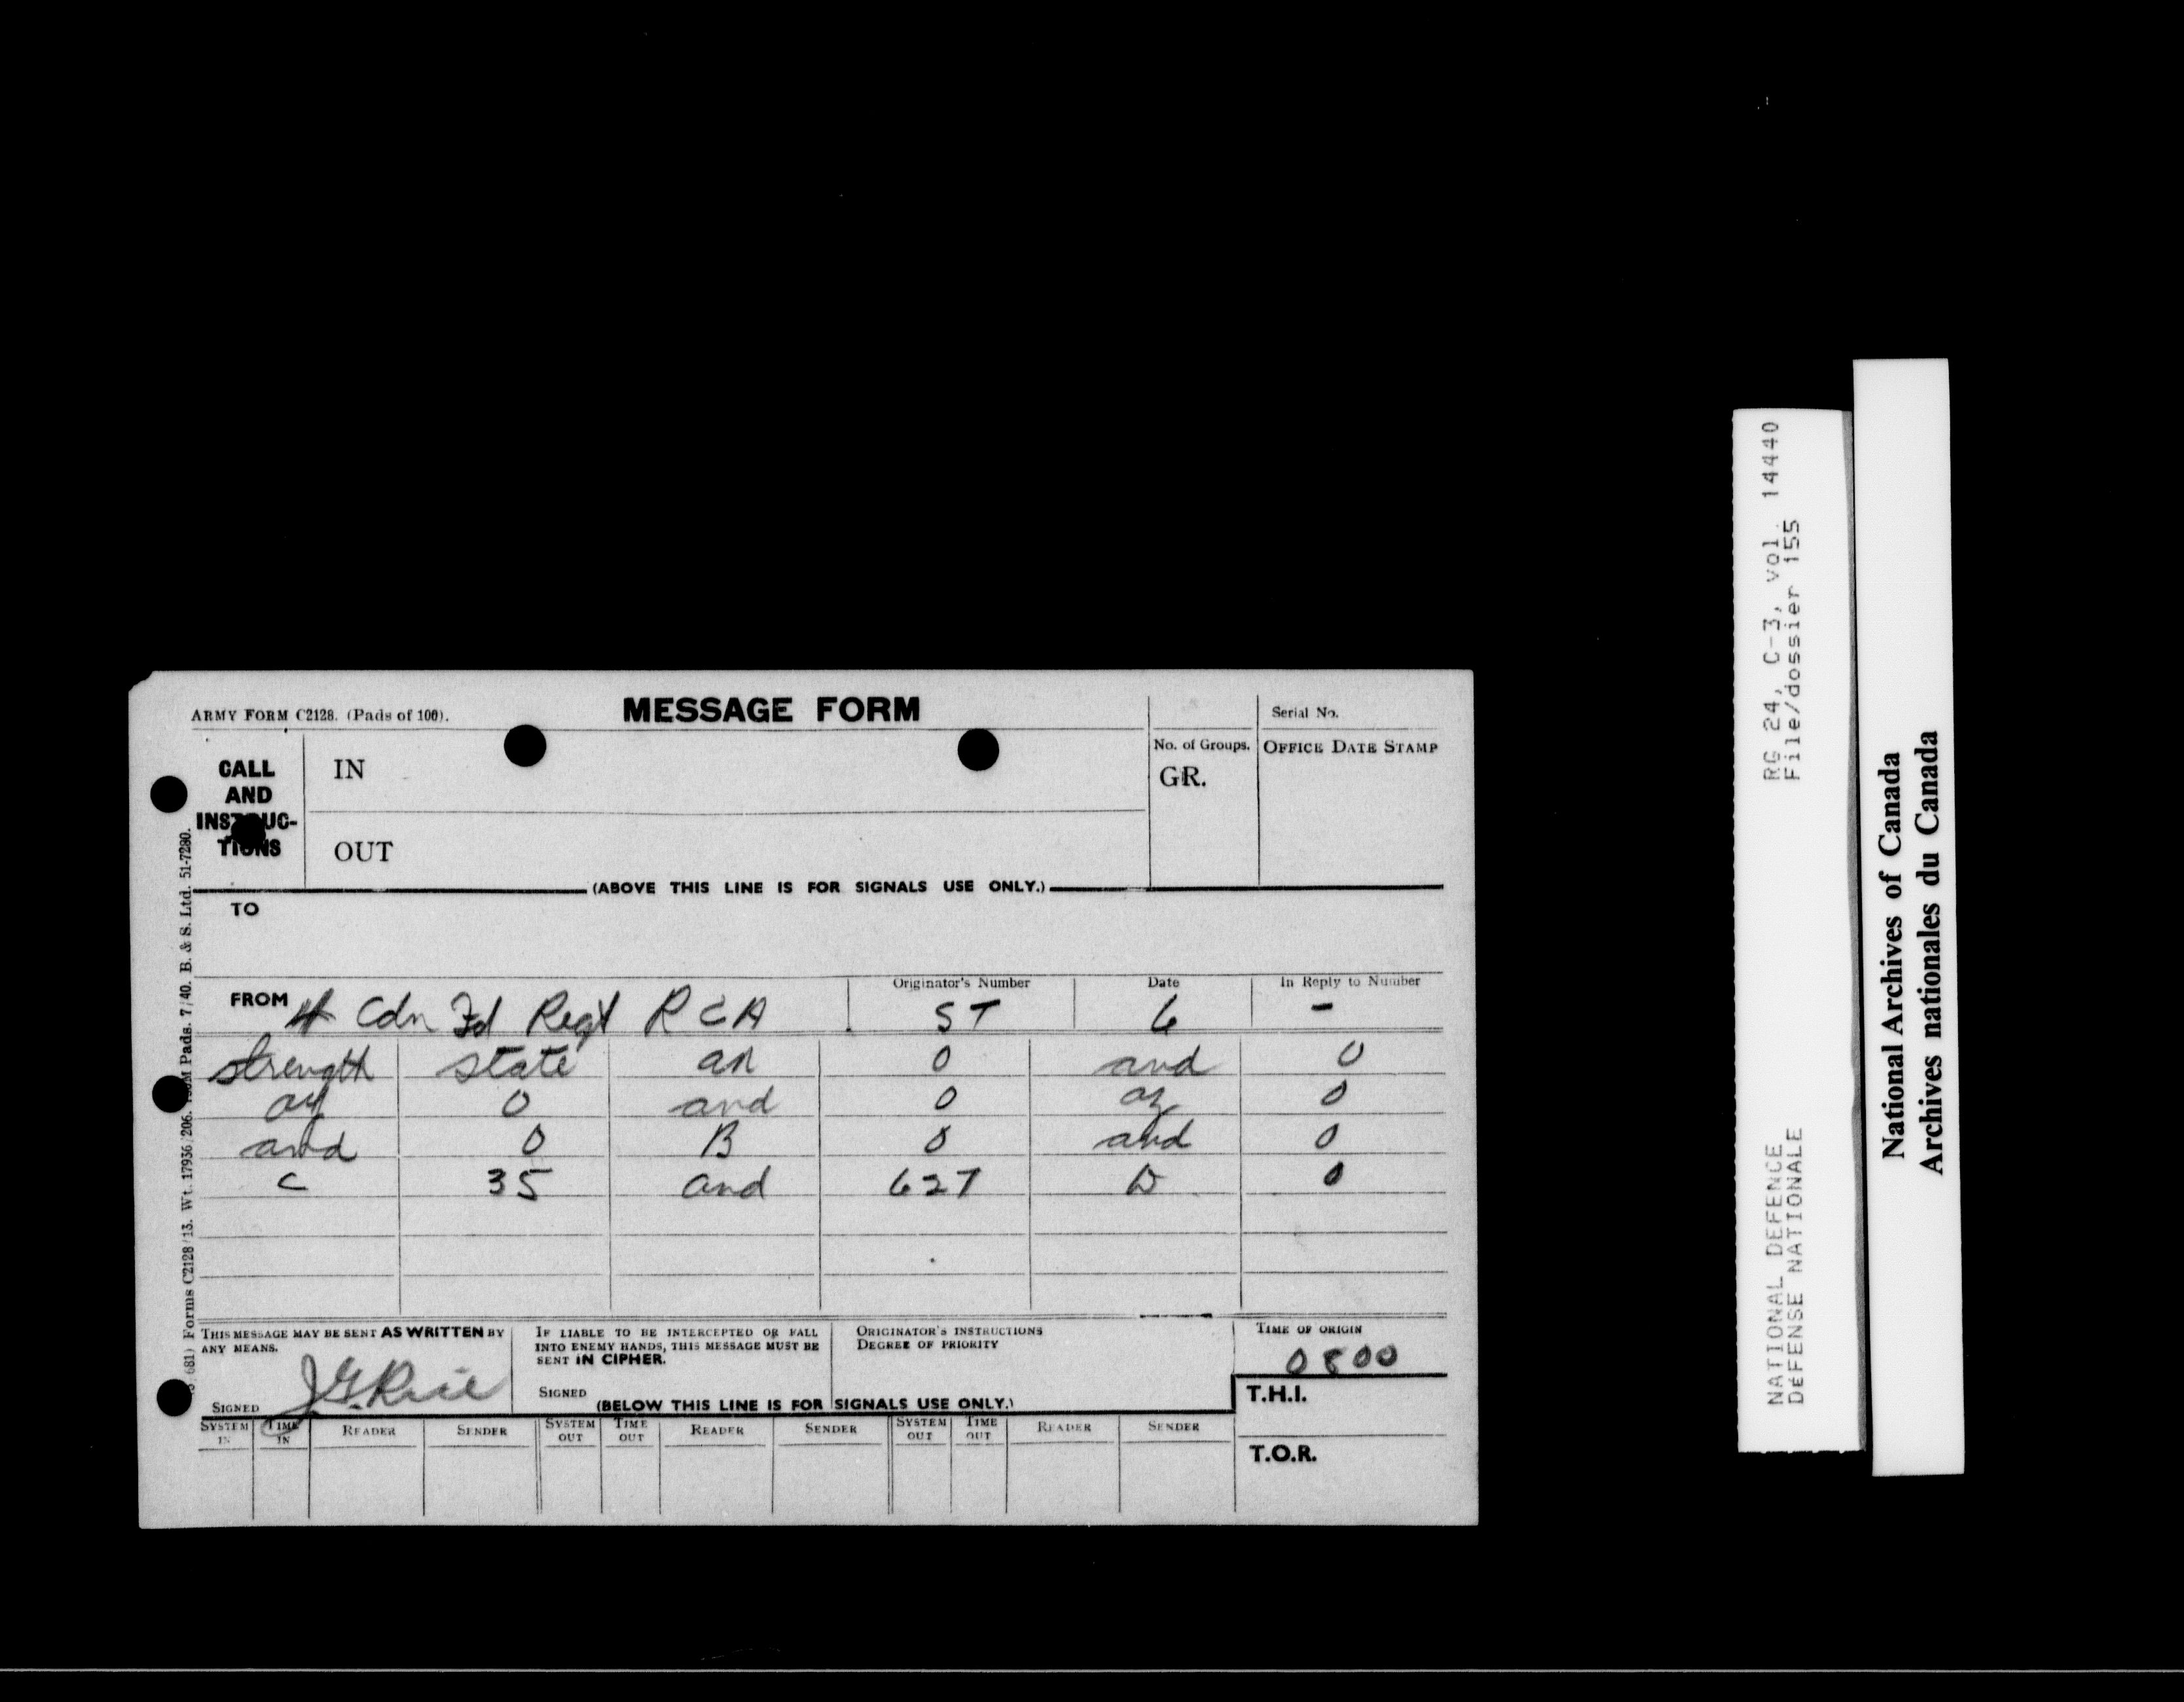 ARMY FORM C2128. (Pads of 100).
MESSAGE FORM
Serial No.
CALL AND INSTRUC-TIONS
IN
No. of Groups.
GR.
OFFICE DATE STAMP
OUT
(ABOVE THIS LINE IS FOR SIGNALS USE ONLY.)
TO
FROM 4 Cdn Fd Regt RCA
Originator's Number
ST
Date
6
In Reply to Number
-
strength state an 0 and 0
ay 0 and 0 az 0
and 0 B 0 and 0
C 35 and 627 D 0
THIS MESSAGE MAY BE SENT AS WRITTEN BY
ANY MEANS.
SIGNED J.G. Rice
IF LIABLE TO BE INTERCEPTED OR FALL
INTO ENEMY HANDS, THIS MESSAGE MUST BE
SENT IN CIPHER.
SIGNED
ORIGINATOR'S INSTRUCTIONS
DEGREE OF PRIORITY
TIME OF ORIGIN
0800
(BELOW THIS LINE IS FOR SIGNALS USE ONLY.)
T.H.I.
SYSTEM IN TIME IN READER SENDER SYSTEM OUT TIME OUT READER SENDER SYSTEM OUT TIME OUT READER SENDER
T.O.R.
681) Forms C2128/13. Wt. 17936/206. Pads. 7/40. B. & S. Ltd. 51-7280.
RG 24, C-3, vol. 14440
File/dossier 155
NATIONAL DEFENCE
DÉFENSE NATIONALE
National Archives of Canada
Archives nationales du Canada